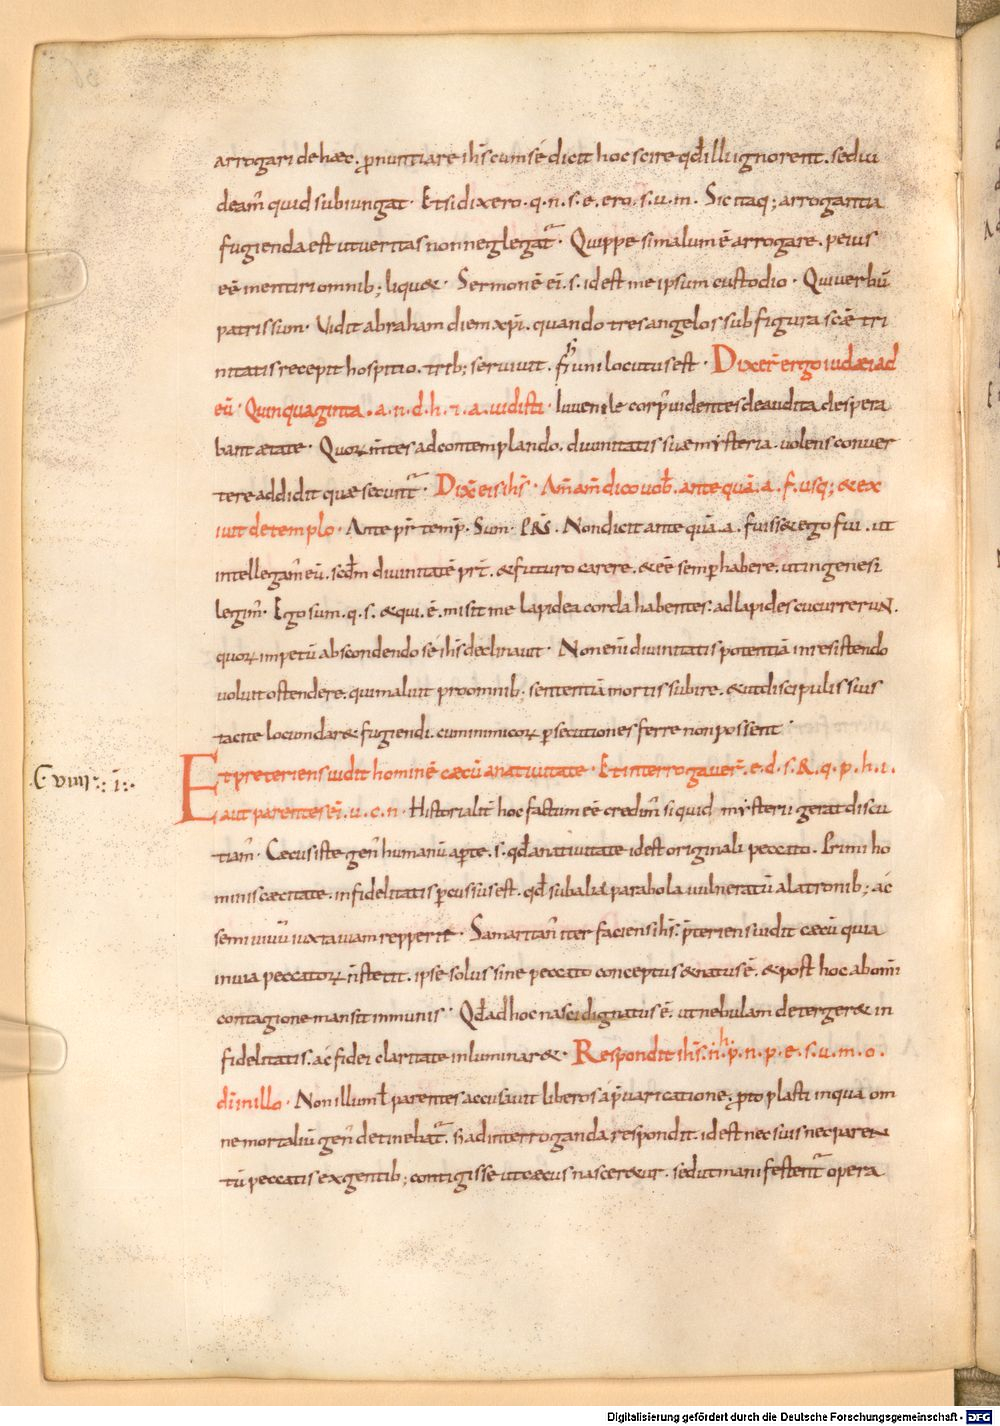 arrogari de hęc. ꝓnuntiare ih̅s cum sé dicit hoc scire qđ illi ignorent. sed ui
deam̅ quid subiungat· Et si dixero· q. n. s. e. ero. s. u. m. Sic itaq; arrogantia
fugienda est ut ueritas non neglegat᷑· Quippe si malum ē arrogare. peius
eē mentiri omnib; liqu&· Sermonē ei̅. s. id est me ipsum custodio· Qui uerbū
patris sum· Vidit abraham diem xp̅i. quando tres angelos sub figura scæ̅ tri
nitatis recepit hospitio. trib; seruiuit. uni locutus est· Dixer̅ ergo iudæi ad
eū· Quinquaginta. a. n. d. h. & . a. uidisti· Iuuenile corp᷒ uidentes de audita despera
bant ætate· Quoꝝ m̅tes ad contemplando. diuinitatis suæ mysteria. uolens conuer
tere addidit quæ secunt᷑· Dix̅ eis ih̅s· Am̅ am̅ dico uob̅. ante quā. a. f. usq; & ex
iuit de templo· Ante pr̅t temp̅. Sum· prs̅. Non dicit ante quā. a. fuiss& ego fui. ut
intellegam̅ eū. scđm diuinitatē pr̅t. & futuro carere. & eē semp̲ habere. ut in genesi
legim̅· Ego sum. q. s. & qui. ē. misit me lapidea corda habentes: ad lapides cucurreruN.
quoꝝ impetū abscondendo sé ih̅s declinauit· Non eni̅ diuinitatis potentiā in resistendo
uoluit ostendere. qui maluit pro omnib; sententiā mortis subire. & ut discipulis suis
tacite locum dar& fugiendi. cum inimicoꝝ ꝑsecutiones ferre non possent·
C· VIIII·:· i·:·
Et preteriens uidit hominē cæcū a natiuitate· Et interrogauer̅. e. d. s. R. q. p. h. i.
aut parentes ei̅. u. c. n· Historialit̅ hoc factum eē credim̅ si quid mysterii gerat discu
tiam̅· Cæcus iste gen̅ humanū aꝑte. s. qđ a natiuitate id est originali peccato. Primi ho
minis cæcitate. infidelitatis ꝑcussus est. qđ sub alia parabola uulneratū a latronib; ac
semiuiuū iuxta uiam repperit· Samaritan̅ iter faciens ih̅s. p̅teriens uidit cæcū quia
in uia peccatoꝝ n̅ stetit. ipse solus sine peccato conceptus & natus ē. & post hoc ab omi̅
contagione mansit inmunis· Qđ ad hoc nasci dignatus ē. ut nebulam deterger& in
fidelitatis. ac fidei claritate inluminar&· Respondit ih̅s. n̅. h. p. n. p. e. s. u. m. o.
di̅ in illo· Non illum ł parentes accusauit liberos á p̅uaricatione. ꝓtoplasti in qua om
ne mortaliū gen̅ detinebat᷑. s; ad interroganda respondit. id est nec suis nec pareN
tū peccatis exgentib; contigisse ut cæcus nasceretur. sed ut manifestent᷑ opera
Digitalisierung gefördert durch die Deutsche Forschungsgemeinschaft - DFG